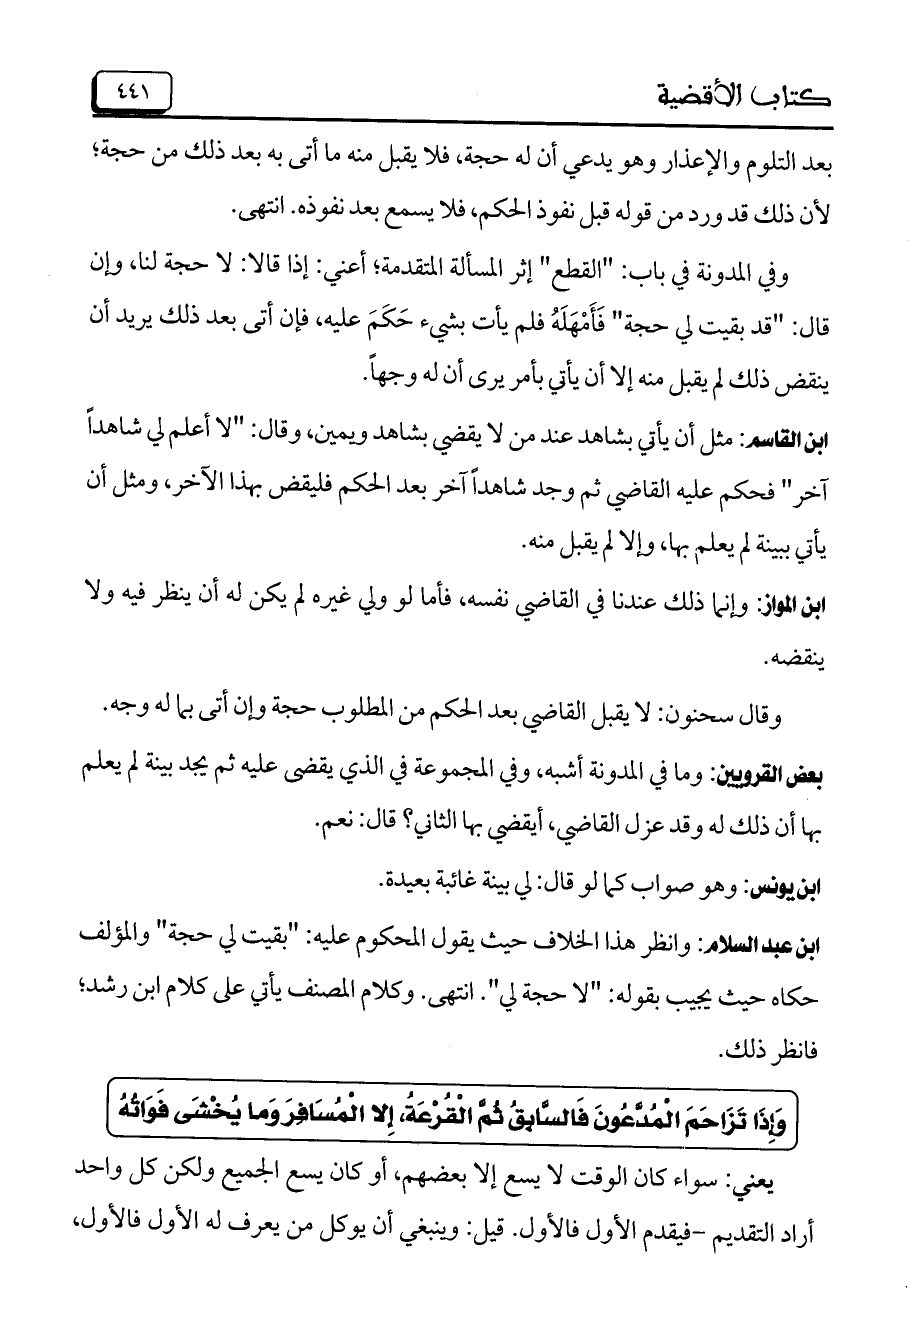 كتاب الأقضية
٤٤١
بعد التلوم والإعذار وهو يدعي أن له حجة، فلا يقبل منه ما أتى به بعد ذلك من حجة؛
لأن ذلك قد ورد من قوله قبل نفوذ الحكم، فلا يسمع بعد نفوذه. انتهى.
وفي المدونة في باب: "القطع" إثر المسألة المتقدمة؛ أعني: إذا قالا: لا حجة لنا، وإن
قال: "قد بقيت لي حجة" فَأَمْهَلَهُ فلم يأت بشيء حَكَمَ عليه، فإن أتى بعد ذلك يريد أن
ينقض ذلك لم يقبل منه إلا أن يأتي بأمر يرى أن له وجهاً.
ابن القاسم: مثل أن يأتي بشاهد عند من لا يقضي بشاهد ويمين، وقال: "لا أعلم لي شاهداً
آخر" فحكم عليه القاضي ثم وجد شاهداً آخر بعد الحكم فليقض بهذا الآخر، ومثل أن
يأتي ببينة لم يعلم بها، وإلا لم يقبل منه.
ابن المواز: وإنما ذلك عندنا في القاضي نفسه، فأما لو ولي غيره لم يكن له أن ينظر فيه ولا
ينقضه.
وقال سحنون: لا يقبل القاضي بعد الحكم من المطلوب حجة وإن أتى بما له وجه.
بعض القرويين: وما في المدونة أشبه، وفي المجموعة في الذي يقضى عليه ثم يجد بينة لم يعلم
بها أن ذلك له وقد عزل القاضي، أيقضي بها الثاني؟ قال: نعم.
ابن يونس: وهو صواب كما لو قال: لي بينة غائبة بعيدة.
ابن عبد السلام: وانظر هذا الخلاف حيث يقول المحكوم عليه: "بقيت لي حجة" والمؤلف
حكاه حيث يجيب بقوله: "لا حجة لي". انتهى. وكلام المصنف يأتي على كلام ابن رشد؛
فانظر ذلك.
وَإِذَا تَزَاحَمَ الْمُدَّعُونَ فَالسَّابِقُ ثُمَّ الْقُرْعَةُ، إِلا الْمُسَافِرَ وَمَا يُخْشَى فَوَاتُهُ
يعني: سواء كان الوقت لا يسع إلا بعضهم، أو كان يسع الجميع ولكن كل واحد
أراد التقديم –فيقدم الأول فالأول. قيل: وينبغي أن يوكل من يعرف له الأول فالأول،